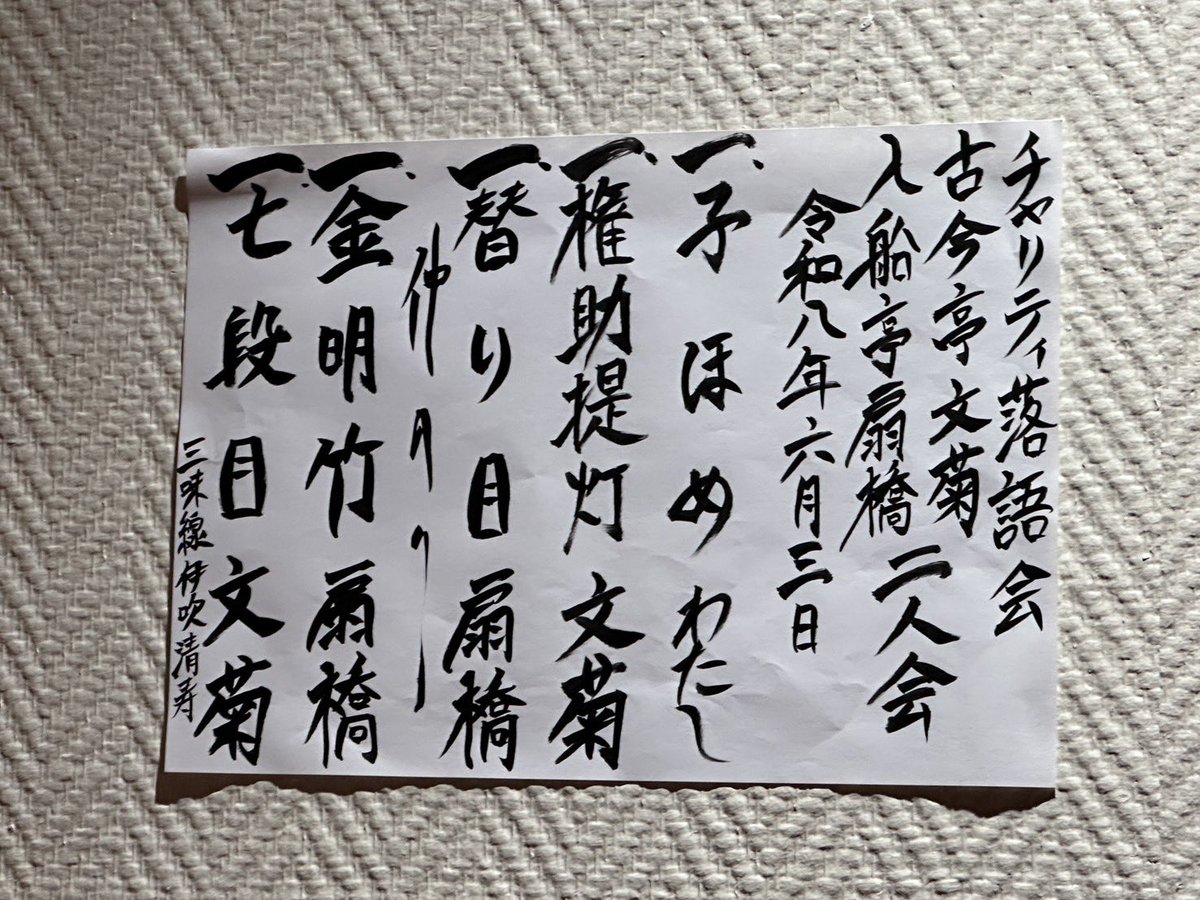 チャリティ落語会
古今亭文菊
入船亭扇橋 二人会
令和八年六月三日
一、子ほめ わたし
一、権助提灯 文菊
一、替り目 扇橋
仲入り
一、金明竹 扇橋
一、七段目 文菊
三味線 伊吹清寿